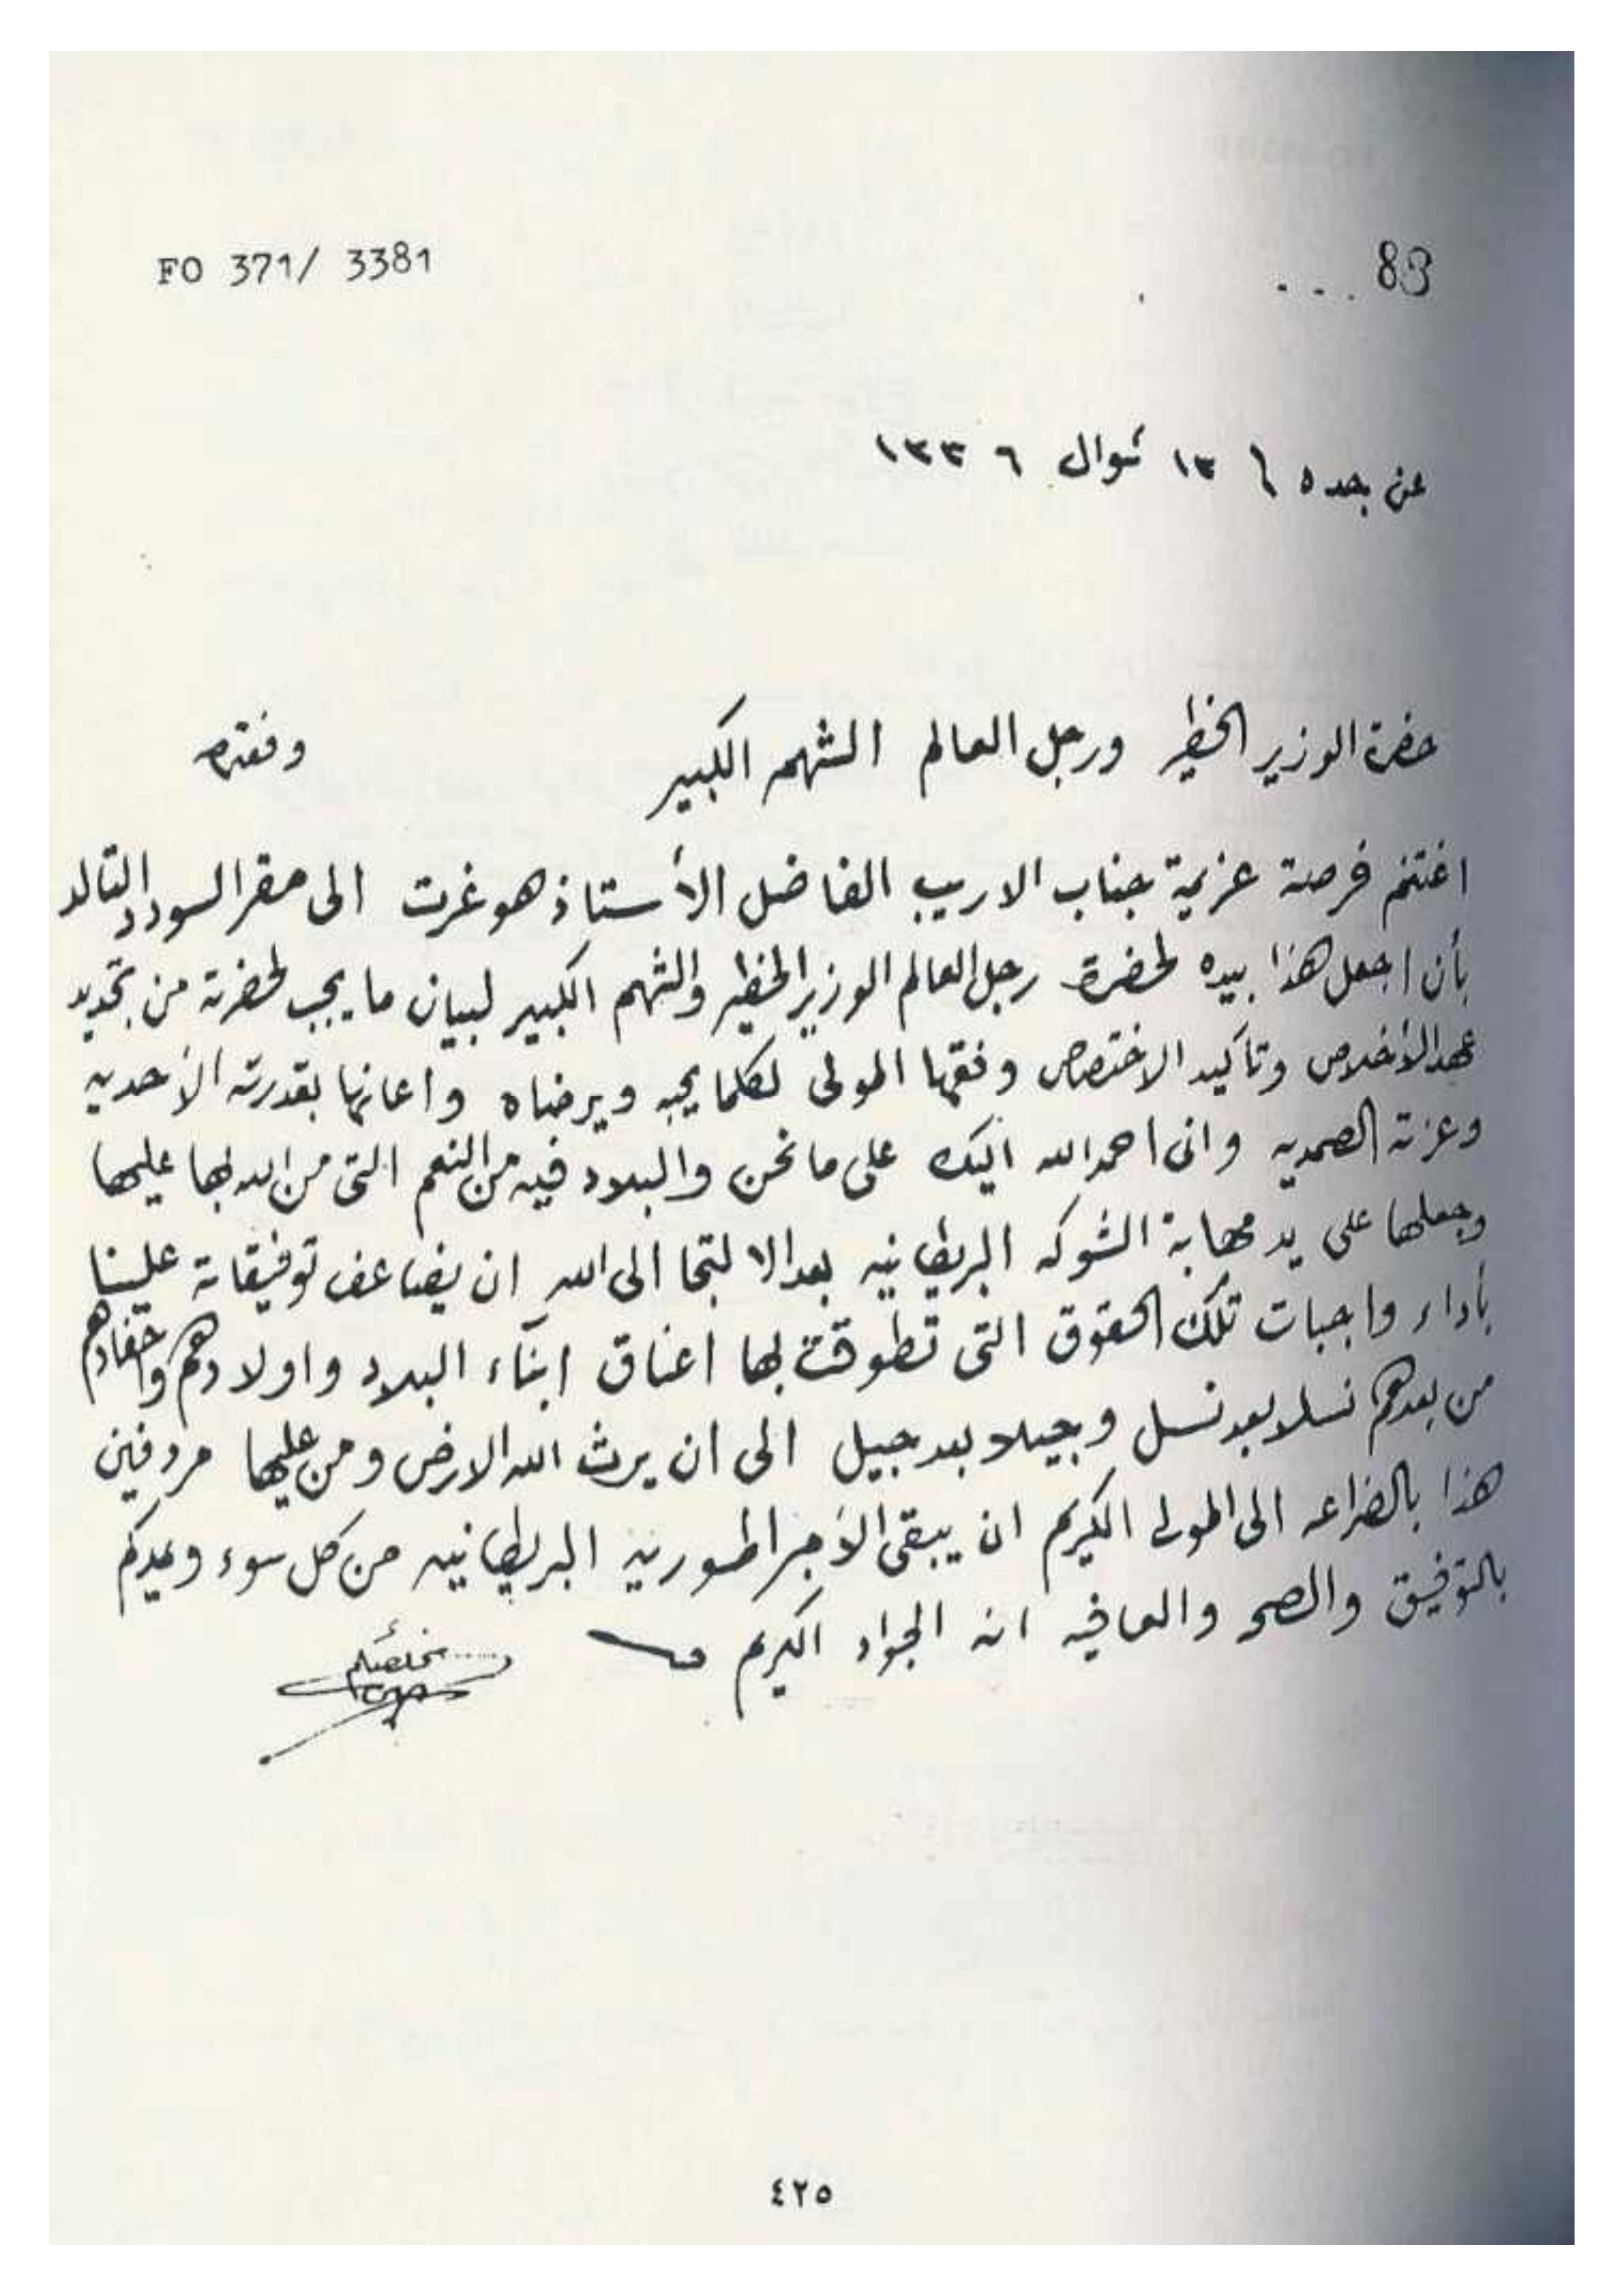 FO 371/ 3381
83
عن جده ١٣ شوال ١٣٣٦
حضرة الوزير الخطير ورجل العالم الشهم الكبير
اغتنم فرصة عزيمة جناب الاريب الفاضل الأستاذ هوغرت الى مقر السودد التالد
بأن اجعل هذا بيده لحضرة رجل العالم الوزير الخطير والشهم الكبير لبيان ما يجب لحضرته من تجديد
عهد الأخلاص وتأكيد الاختصاص وفقها المولى لكلما يحبه ويرضاه واعانها بقدرته الأحديه
وعزته الصمديه وانى احمد الله اليك على ما نحن والبلاد فيه من النعم التى من الله بها عليها
وجعلها على يد مهابة الشوكه البريطانيه بعد الالتجا الى الله ان يضاعف توفيقاته علينا
بأداء واجبات تلك الحقوق التى تطوقت بها اعناق ابنآء البلاد واولادهم واحفادهم
من بعدهم نسلا بعد نسل وجيلا بعد جيل الى ان يرث الله الارض ومن عليها مردفين
هذا بالضراعه الى المولى الكريم ان يبقى الأمبراطوريه البريطانيه من كل سوء ويمدكم
بالتوفيق والصحه والعافيه انه الجواد الكريم
مخلصكم
٤٢٥